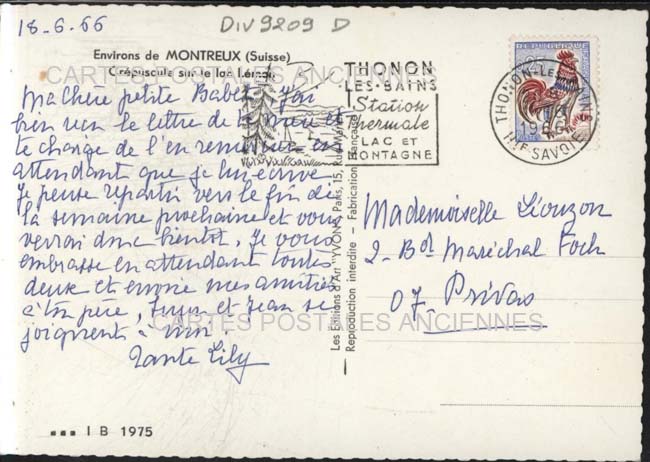 18-6-66
DIV9209 D
Environs de MONTREUX (Suisse)
Crépuscule sur le lac Léman
CARTES POSTALES ANCIENNES
Ma chère petite Babet j'ai
bien reçu la lettre de ta mère et
te charge de l'en remercier en
attendant que je lui écrive
Je pense repartir vers la fin de
la semaine prochaine et vous
verrai donc bientôt. Je vous
embrasse en attendant toutes
deux et envoie mes amitiés
à ton père, et Jean se
joignent à moi
CARTES POSTALES ANCIENNES
Tante Lily
▪▪▪ I B 1975
THONON
LES-BAINS
Station
Thermale
LAC ET
MONTAGNE
Les Editions d'Art "YVON", Paris, 15, Rue
Reproduction interdite - Fabrication Française
REPUBLIQUE FRANÇAISE
THONON-LES-BAINS
1966
HTE SAVOIE
Mademoiselle Liouzon
2 - Bd Maréchal Foch
07. Privas